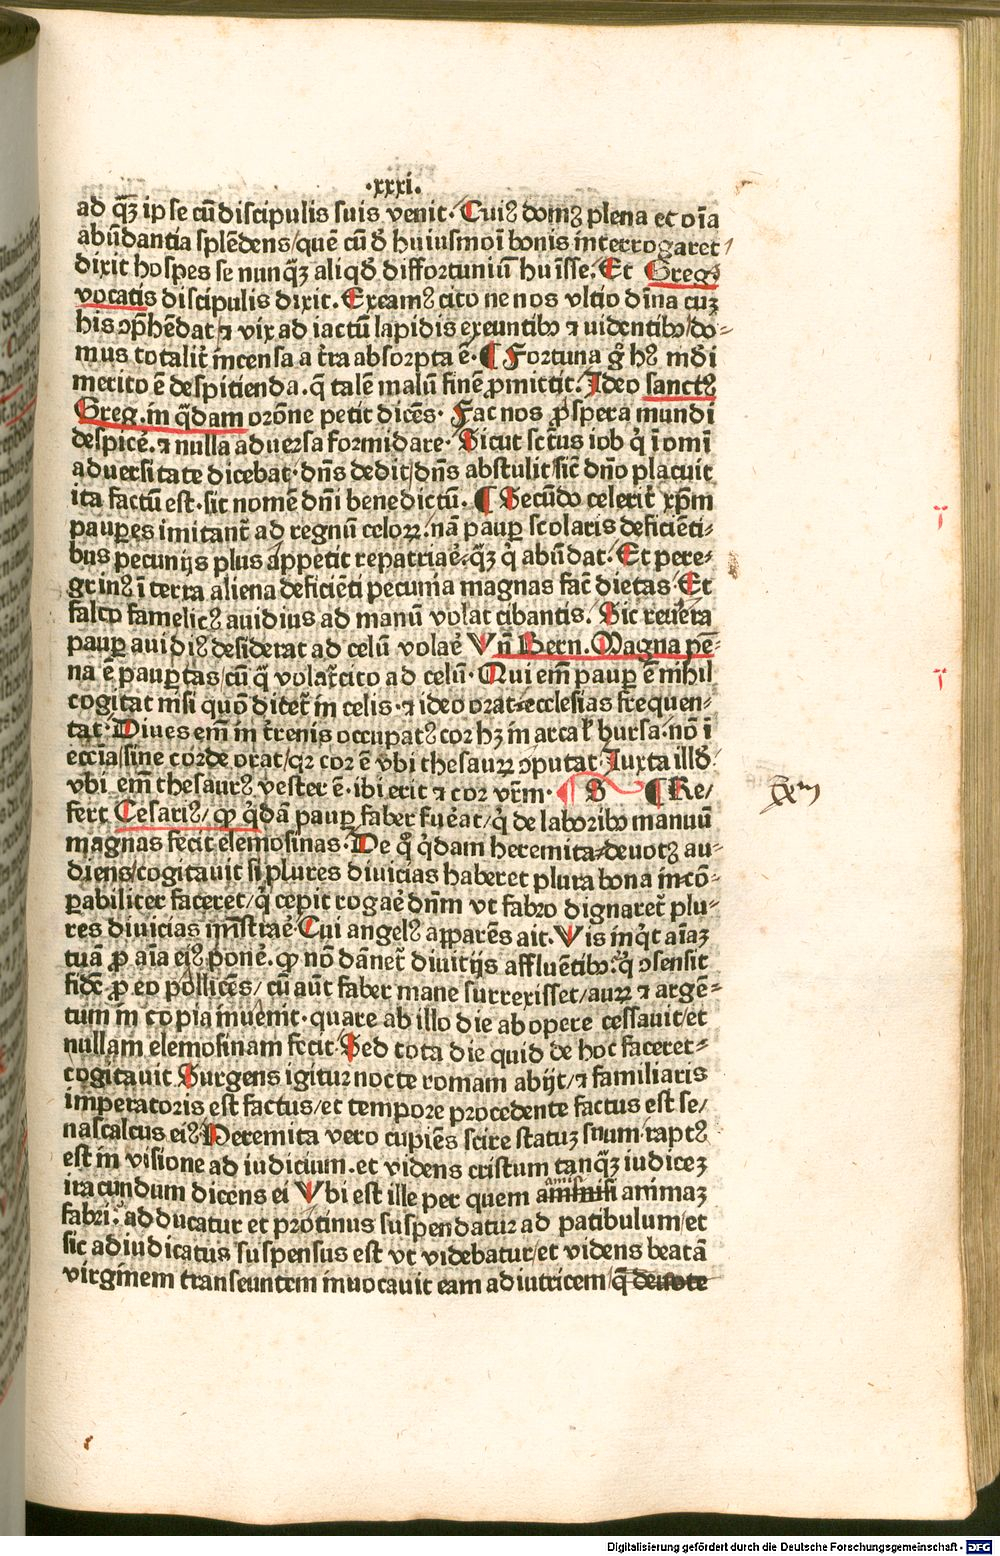 ·xxxi.
ad qȝ̄ ipse cū discipulis suis venit. Cuiꝰ domꝰ plena et oīa
abūdantia splēdens/quē cū ď huiusmoi bonis interrogaret
dixit hospes se nunqȝ̄ aliqď diffortuniū huisse. Et Greg.
vocatis discipulis dixit. Exeamꝰ cito ne nos vltio dīna cuȝ
his ꝯp̄hēdat ⁊ vix ad iactū lapidis exeuntibꝰ ⁊ uidentibꝰ/do-
mus totalit̄ incensa a t̄ra absorpta ē. ¶ Fortuna g̊ hꝰ mūdi
merito ē despicienda. q̄ talē malū finē ꝓmittit. Ideo sanctꝰ
Greg. in q̄dam orōne petit dicēs. Fac nos ꝓspera mundi
despicē. ⁊ nulla aduersa formidare. Sicut sctūs iob q̇ ī omī
aduersitate dicebat. dn̄s dedit/dn̄s abstulit sic̄ dn̄o placuit
ita factū est. sit nomē dn̄i benedictū. ¶ Secūdo celerit̄ xp̄m
paupes imitant̄ ad regnū celoꝝ. nā paup scolaris deficiēti-
bus pecunijs plus appetit repatriaē. qȝ̄ q̇ abūdat. Et pere-
grinꝰ ī terra aliena deficiēti pecunia magnas fac̄ dietas. Et
falco famelicꝰ auidius ad manū volat cibantis. Sic reuera
paup auidiꝰ desiderat ad celū volaē Vn̄ Bern. Magna pē-
na ē paupertas/cū q̄ volat̄ cito ad celū. Qui em̄ paup ē nihil
cogitat nisi quō ditet̄ in celis. ⁊ ideo orat ecclesias frequen-
tat. Diues em̄ in t̄renis occupatꝰ cor hȝ in arca ł bursa. nō ī
ecc̄ia/sine corde orat/qꝛ cor ē vbi thesauꝝ ꝯputat. Juxta illď
vbi em̄ thesaurꝰ vester ē. ibi erit ⁊ cor vr̄m. ¶ B ¶ Re/
fert Cesariꝰ/ ꝙ q̇dā paup faber fuēat/q̇ de laboribꝰ manuū
magnas fecit elemosinas. De q̊ q̇dam heremita deuotꝰ au-
diens/cogitauit si plures diuicias haberet plura bona incō-
pabiliter faceret/q̇ cepit rogaē dn̄m vt fabro dignaret̄ plu-
res diuicias mīstraē Cui angelꝰ apparēs ait. Vis inq̇t aīaȝ
tuā ꝓ aīa eiꝰ ponē. ꝙ nō dānet̄ diuitijs affluētibꝰ. q̇ ꝯsensit
fidē ꝓ eo pollicēs/ cū aut̄ faber mane surrexisset/auꝝ ⁊ argē-
tum in copia inuenit. quare ab illo die ab opere cessauit/et
nullam elemosinam fecit. Sed tota die quid de hoc faceret-
cogitauit Surgens igitur nocte romam abijt/⁊ familiaris
imperatoris est factus/et tempore procedente factus est se/
nascalcus eiꝰ Heremita vero cupiēs scire statuȝ suum. raptꝰ
est in visione ad iudicium. et videns cristum tanqȝ̄ iudiceȝ
iracundum dicens ei Vbi est ille per quem amisi animaȝ
fabri. adducatur et protinus suspendatur ad patibulum/et
sic adiudicatus suspensus est vt videbatur/et videns beatā
virginem transeuntem inuocauit eam adiutricem/q̄ deuote
Digitalisierung gefördert durch die Deutsche Forschungsgemeinschaft - DFG